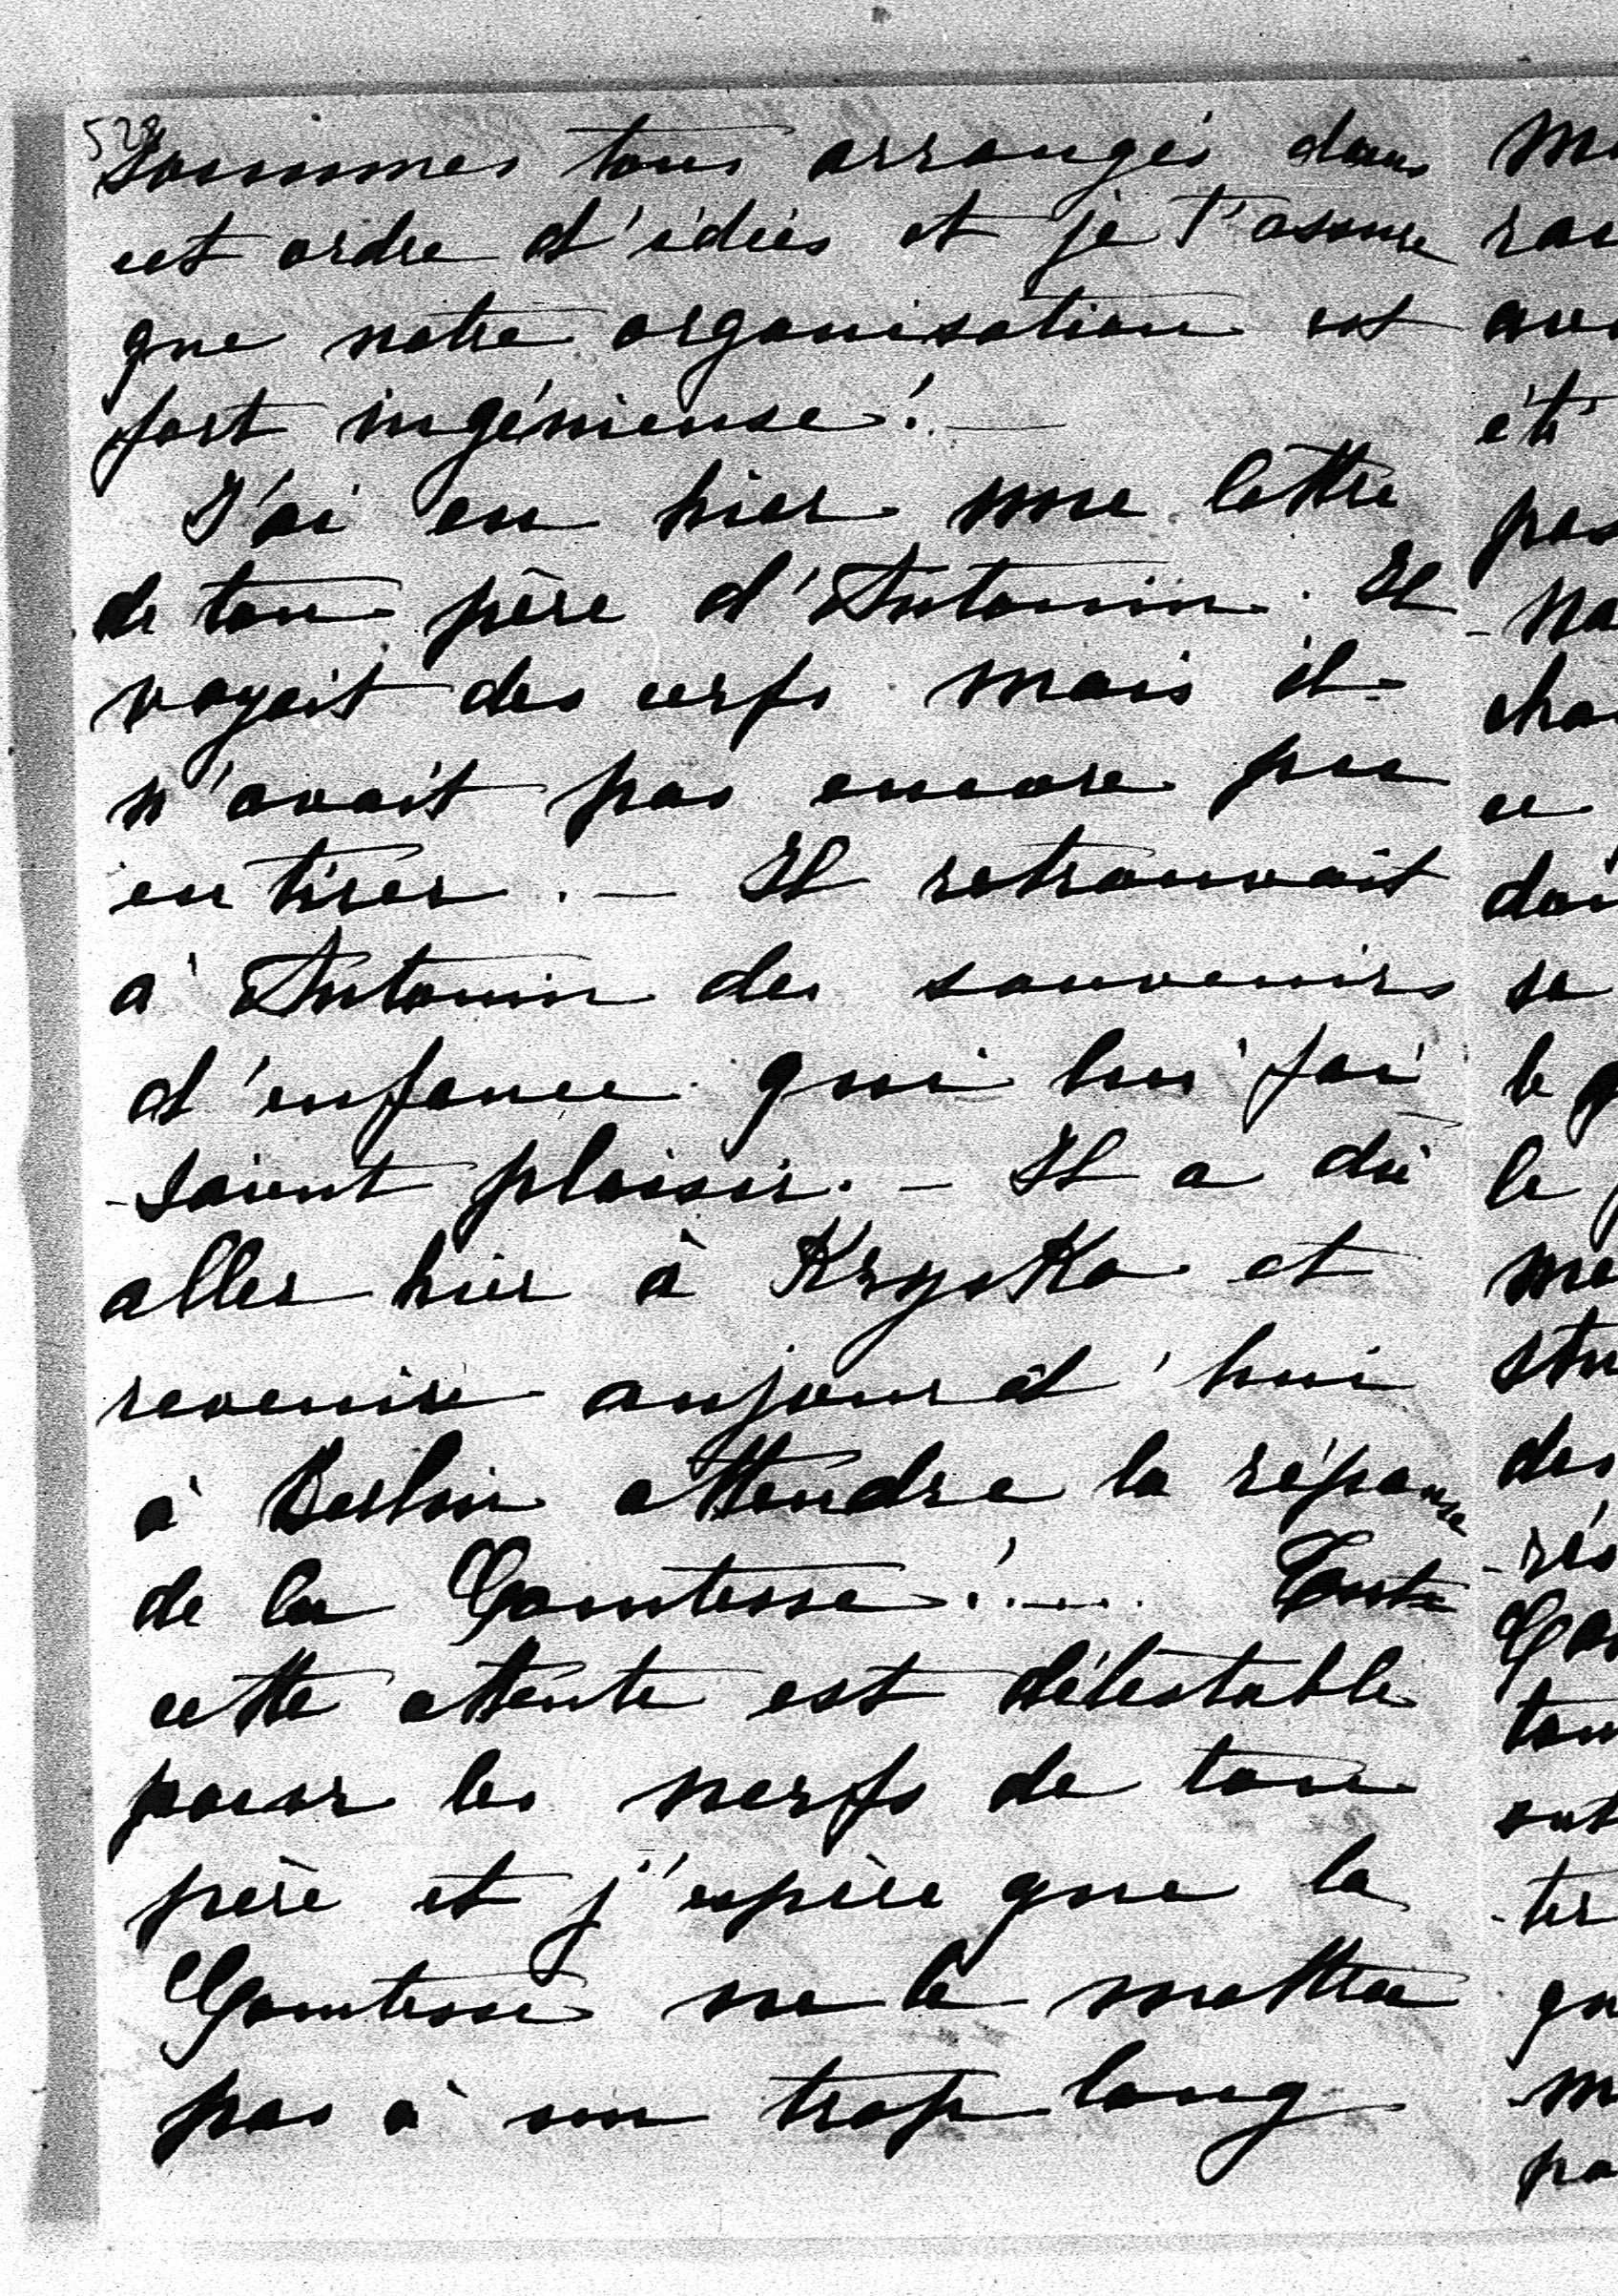 sommes tous arrangés dans
cet ordre d'idées et je t'assure
que notre organisation est
fort ingénieuse! —
J'ai eu hier une lettre
de ton père d'Antonin. Il
voyait des cerfs mais il
n'avait pas encore pu
en tirer. — Il retrouvait
à Antonin des souvenirs
d'enfance qui lui fai
-saient plaisir. — Il a dû
aller hier à Kryska et
revenir aujourd'hui
à Berlin attendre la réponse
de la Comtesse!.... Toute
cette attente est détestable
pour les nerfs de ton
père et j'espère que la
Comtesse ne le mettra
pas à un trop long